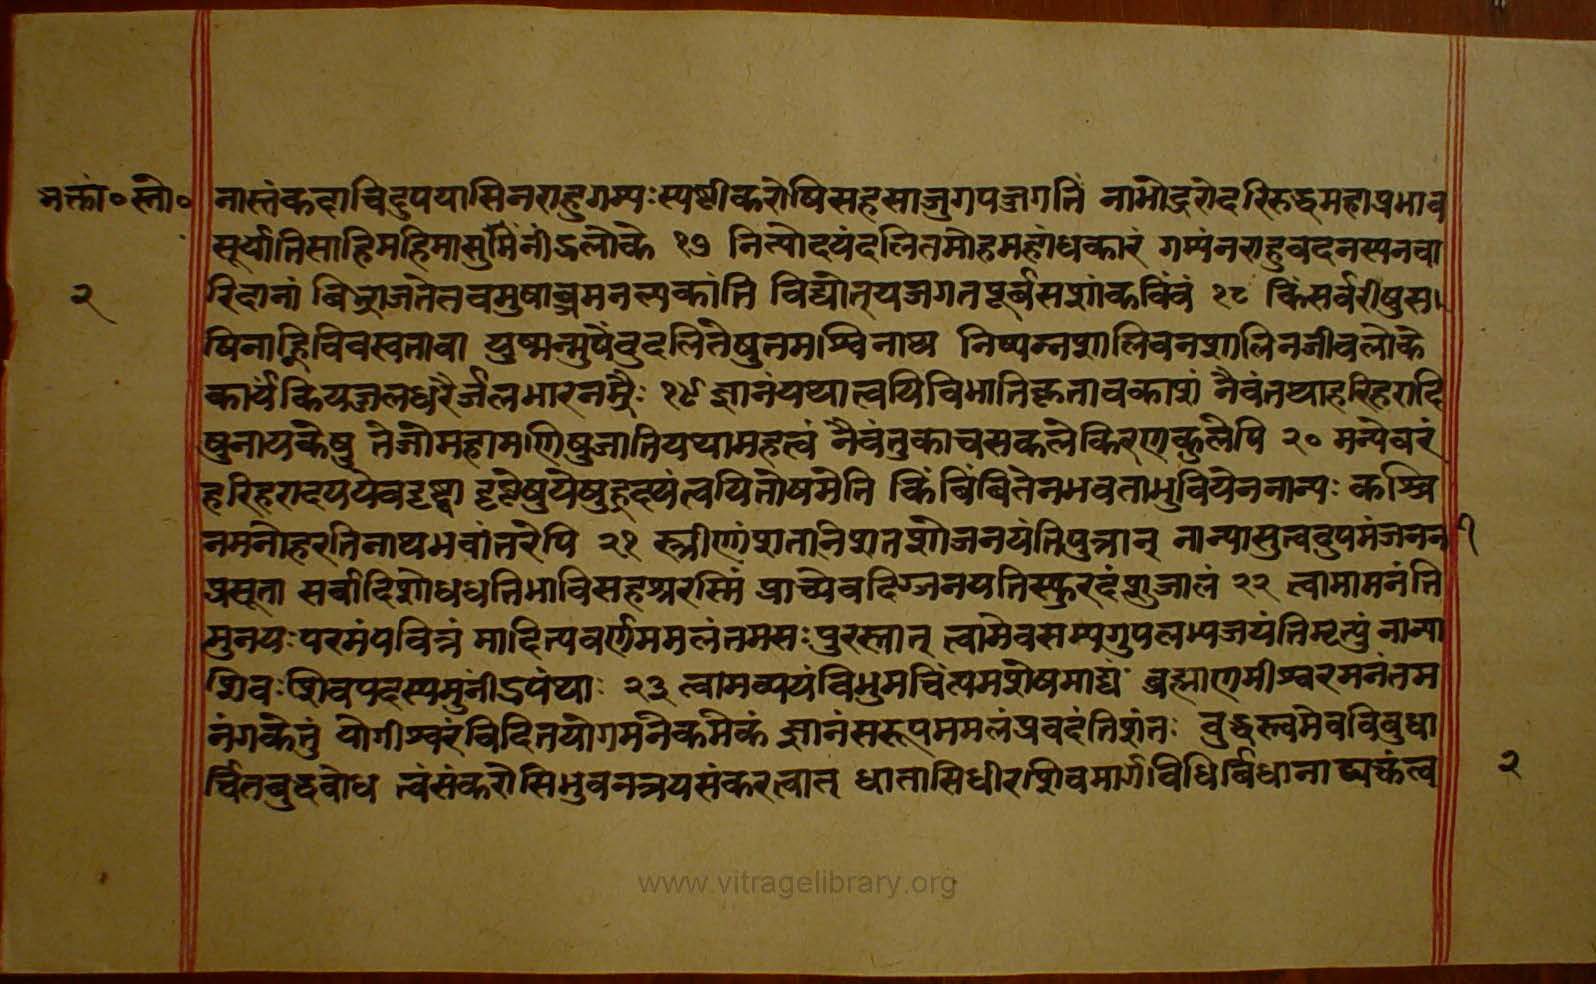 भक्तां॰स्तो॰
२
नास्तंकदाचिदुपयासिनराहुगम्यःस्पष्टीकरोषिसहसाजुगपज्जगतिं नांभोदरोदरिरुद्धमहाप्रभाव
सूर्यातिसाहिमहिमासुमिंनींऽलोके १७ नित्योदयंदलितमोहमहांधकारं गम्यंनराहुवदनस्यनवा
रिदानां बिभ्राजतेतवमुषाब्जमनल्पकांति विद्योत्यजगतपूर्बसशांकविंवं १८ किंसर्वरीषुस।
षिनाह्निविवस्वतावा युष्मन्मुषेंवुदलितेषुतमश्विनाथ्य निष्पन्नशालिवनशालिनजीवलोके
कार्यंकियज्जलधरैर्जलभारनम्रैः १९ ज्ञानंयथात्वयिविभातिकृतावकाशं नैवंतथाहरिहरादि
षुनायकेषु तेजोमहामणिषुजातियथामहत्वं नैवंतुकाचसकलेकिरणकुलेपि २० मन्येवरं
हरिहरादययेवदृष्ट्वा दृष्टेषुयेषुहृदयंत्वयितोषमेति किंबिंबितेनभवताभुवियेननान्यः कश्चि
नमनोहरतिनाथभवांतरेपि २१ स्त्रीणंशतानिशतशोजनयंतिपुत्रान् नान्यासुत्ववुपमंजनन
ी
प्रसूता सर्वादिशोधधतिभाविसहश्ररस्मिं प्राच्येवदिग्जनयतिस्फुरदंशुजालं २२ त्वामामनंति
मुनयःपरमंपवित्रं मादित्यवर्णममलंतमसःपुरस्तात् त्वामेवसम्यगुपलभ्यजयंतिमृत्युं नान्या
शिवःशिवपदस्यमुनींऽपंथाः २३ त्वामव्ययंविभुमचिंत्यमशेषमाद्यं ब्रह्माणमीश्वरमनंतम
नंगकेतुं योगीश्वरंविदितयोगमनेकमेकं ज्ञानंसरूपममलंप्रवदंतिशंतः बुद्धस्त्वमेवविबुधा
र्चितबुद्धबोध त्वंसंकरोसिभुवनत्रयसंकरत्वात् धातासिधीरशिवमार्गविधिर्बिधाना द्यक्तंत्व
२
www.vitragelibrary.org